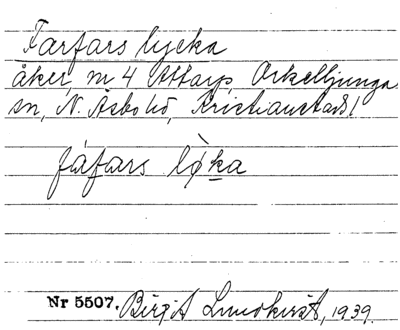 Farfars lycka
åker, nr 4 Attarp, Örkelljunga
sn, N. Åsbo hd, Kristianstads l
fáfars lỳka
Nr 5507. Birgit Lundkvist, 1939.